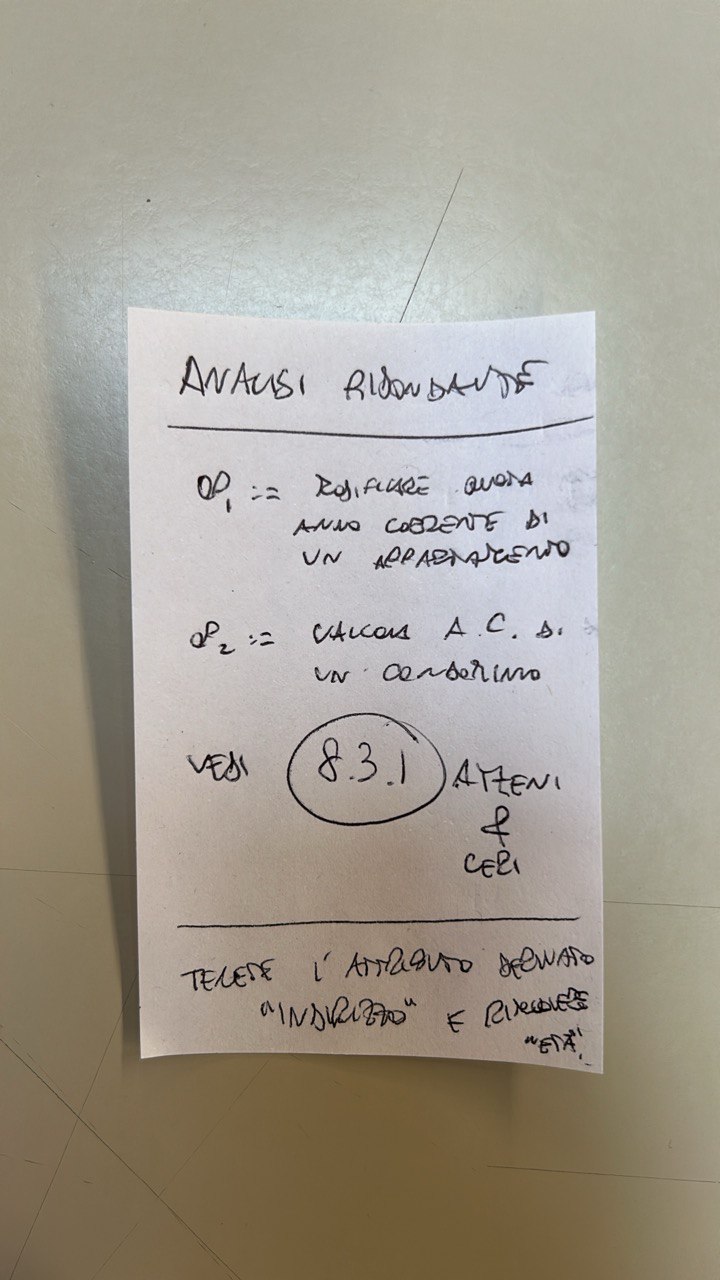 ANALISI RIDONDANZE
OP1 := MODIFICARE QUOTA
ANNO CORRENTE DI
UN APPARTAMENTO
OP2 := CALCOLA A.C. DI
UN CONDOMINIO
VEDI 8.3.1 ATZENI
&
CERI
TENETE L'ATTRIBUTO DERIVATO
"INDIRIZZO" E RIMUOVERE
"ETÀ".